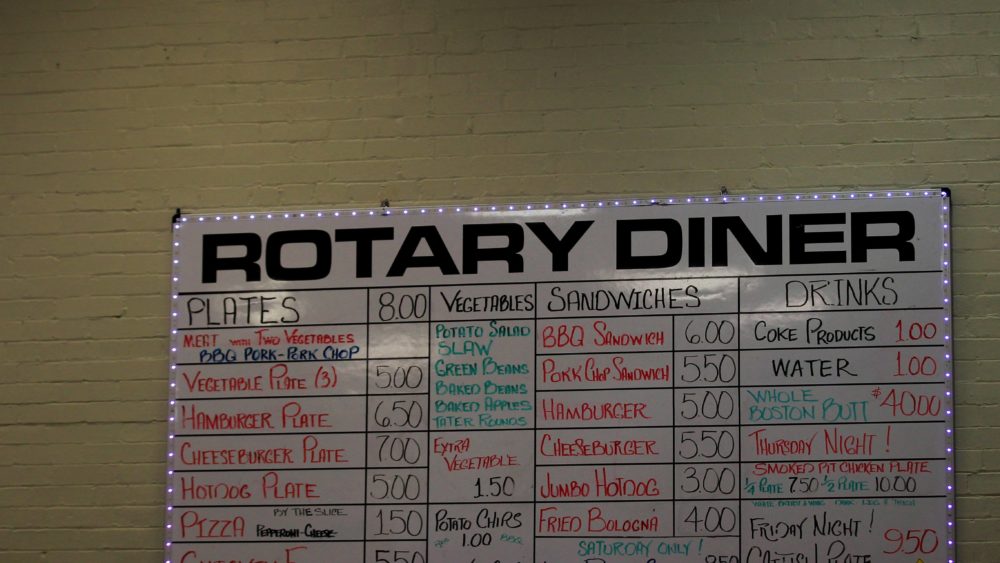 ROTARY DINER
PLATES 8.00
MEAT WITH TWO VEGETABLES
BBQ PORK-PORK CHOP
VEGETABLE PLATE (3) 5.00
HAMBURGER PLATE 6.50
CHEESEBURGER PLATE 7.00
HOTDOG PLATE 5.00
PIZZA BY THE SLICE PEPPERONI-CHEESE 1.50
5.50
VEGETABLES
POTATO SALAD
SLAW
GREEN BEANS
BAKED BEANS
BAKED APPLES
TATER ROUNDS
EXTRA
VEGETABLE
1.50
POTATO CHIPS
1.00 BBQ
SANDWICHES
BBQ SANDWICH 6.00
PORK CHOP SANDWICH 5.50
HAMBURGER 5.00
CHEESEBURGER 5.50
JUMBO HOTDOG 3.00
FRIED BOLOGNA 4.00
SATURDAY ONLY!
DRINKS
COKE PRODUCTS 1.00
WATER 1.00
WHOLE
BOSTON BUTT $40.00
THURSDAY NIGHT!
SMOKED PIT CHICKEN PLATE
1/4 PLATE 7.50 - 1/2 PLATE 10.00
FRIDAY NIGHT!
CATFISH PLATE 9.50